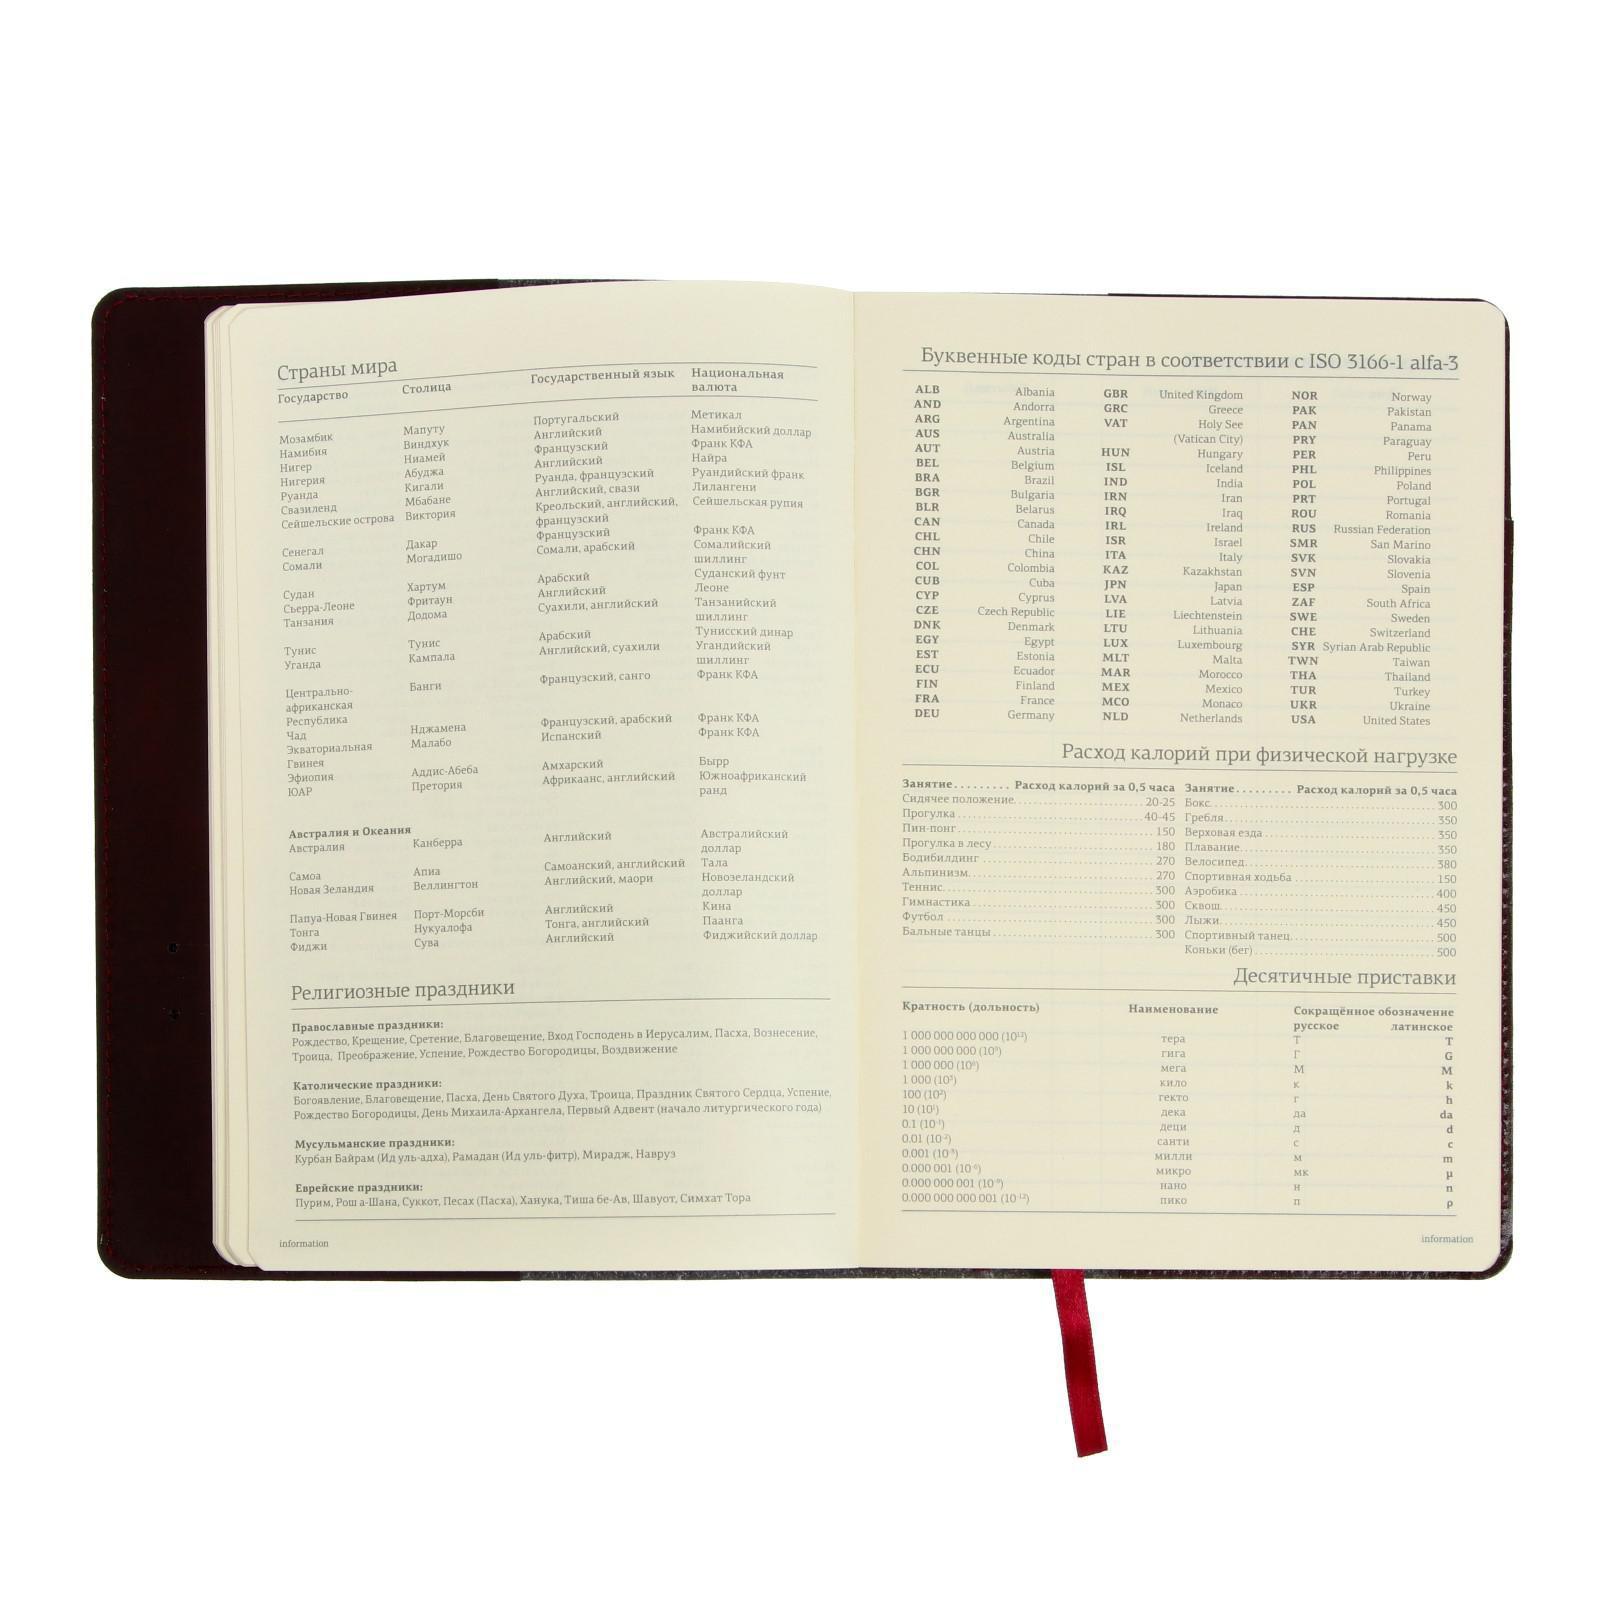 Страны мира
Государство Столица Государственный язык Национальная валюта
Мозамбик Мапуту Португальский Метикал
Намибия Виндхук Английский Намибийский доллар
Нигер Ниамей Французский Франк КФА
Нигерия Абуджа Английский Найра
Руанда Кигали Руанда, французский Руандийский франк
Свазиленд Мбабане Английский, свази Лилангени
Сейшельские острова Виктория Креольский, английский, Сейшельская рупия
французский
Сенегал Дакар Французский Франк КФА
Сомали Могадишо Сомали, арабский Сомалийский
шиллинг
Судан Хартум Арабский Суданский фунт
Сьерра-Леоне Фритаун Английский Леоне
Танзания Додома Суахили, английский Танзанийский
шиллинг
Тунис Тунис Арабский Тунисский динар
Уганда Кампала Английский, суахили Угандийский
шиллинг
Центрально- Банги Французский, санго Франк КФА
африканская
Республика
Чад Нджамена Французский, арабский Франк КФА
Экваториальная Малабо Испанский Франк КФА
Гвинея
Эфиопия Аддис-Абеба Амхарский Бырр
ЮАР Претория Африкаанс, английский Южноафриканский
ранд
Австралия и Океания
Австралия Канберра Английский Австралийский
доллар
Самоа Апиа Самоанский, английский Тала
Новая Зеландия Веллингтон Английский, маори Новозеландский
доллар
Папуа-Новая Гвинея Порт-Морсби Английский Кина
Тонга Нукуалофа Тонга, английский Паанга
Фиджи Сува Английский Фиджийский доллар
Религиозные праздники
Православные праздники:
Рождество, Крещение, Сретение, Благовещение, Вход Господень в Иерусалим, Пасха, Вознесение,
Троица, Преображение, Успение, Рождество Богородицы, Воздвижение
Католические праздники:
Богоявление, Благовещение, Пасха, День Святого Духа, Троица, Праздник Святого Сердца, Успение,
Рождество Богородицы, День Михаила-Архангела, Первый Адвент (начало литургического года)
Мусульманские праздники:
Курбан Байрам (Ид уль-адха), Рамадан (Ид уль-фитр), Мирадж, Навруз
Еврейские праздники:
Пурим, Рош а-Шана, Суккот, Песах (Пасха), Ханука, Тиша бе-Ав, Шавуот, Симхат Тора
information
Буквенные коды стран в соответствии с ISO 3166-1 alfa-3
ALB Albania GBR United Kingdom NOR Norway
AND Andorra GRC Greece PAK Pakistan
ARG Argentina VAT Holy See PAN Panama
AUS Australia (Vatican City) PRY Paraguay
AUT Austria HUN Hungary PER Peru
BEL Belgium ISL Iceland PHL Philippines
BRA Brazil IND India POL Poland
BGR Bulgaria IRN Iran PRT Portugal
BLR Belarus IRQ Iraq ROU Romania
CAN Canada IRL Ireland RUS Russian Federation
CHL Chile ISR Israel SMR San Marino
CHN China ITA Italy SVK Slovakia
COL Colombia KAZ Kazakhstan SVN Slovenia
CUB Cuba JPN Japan ESP Spain
CYP Cyprus LVA Latvia ZAF South Africa
CZE Czech Republic LIE Liechtenstein SWE Sweden
DNK Denmark LTU Lithuania CHE Switzerland
EGY Egypt LUX Luxembourg SYR Syrian Arab Republic
EST Estonia MLT Malta TWN Taiwan
ECU Ecuador MAR Morocco THA Thailand
FIN Finland MEX Mexico TUR Turkey
FRA France MCO Monaco UKR Ukraine
DEU Germany NLD Netherlands USA United States
Расход калорий при физической нагрузке
Занятие......... Расход калорий за 0,5 часа Занятие......... Расход калорий за 0,5 часа
Сидячее положение 20-25 Бокс 300
Прогулка 40-45 Гребля 350
Пин-понг 150 Верховая езда 350
Прогулка в лесу 180 Плавание 350
Бодибилдинг 270 Велосипед 380
Альпинизм 270 Спортивная ходьба 150
Теннис 300 Аэробика 400
Гимнастика 300 Сквош 450
Футбол 300 Лыжи 450
Бальные танцы 300 Спортивный танец 500
Коньки (бег) 500
Десятичные приставки
Кратность (дольность) Наименование Сокращённое обозначение
русское латинское
1 000 000 000 000 (10¹²) тера Т T
1 000 000 000 (10⁹) гига Г G
1 000 000 (10⁶) мега М M
1 000 (10³) кило к k
100 (10²) гекто г h
10 (10¹) дека да da
0.1 (10⁻¹) деци д d
0.01 (10⁻²) санти с c
0.001 (10⁻³) милли м m
0.000 001 (10⁻⁶) микро мк μ
0.000 000 001 (10⁻⁹) нано н n
0.000 000 000 001 (10⁻¹²) пико п p
information